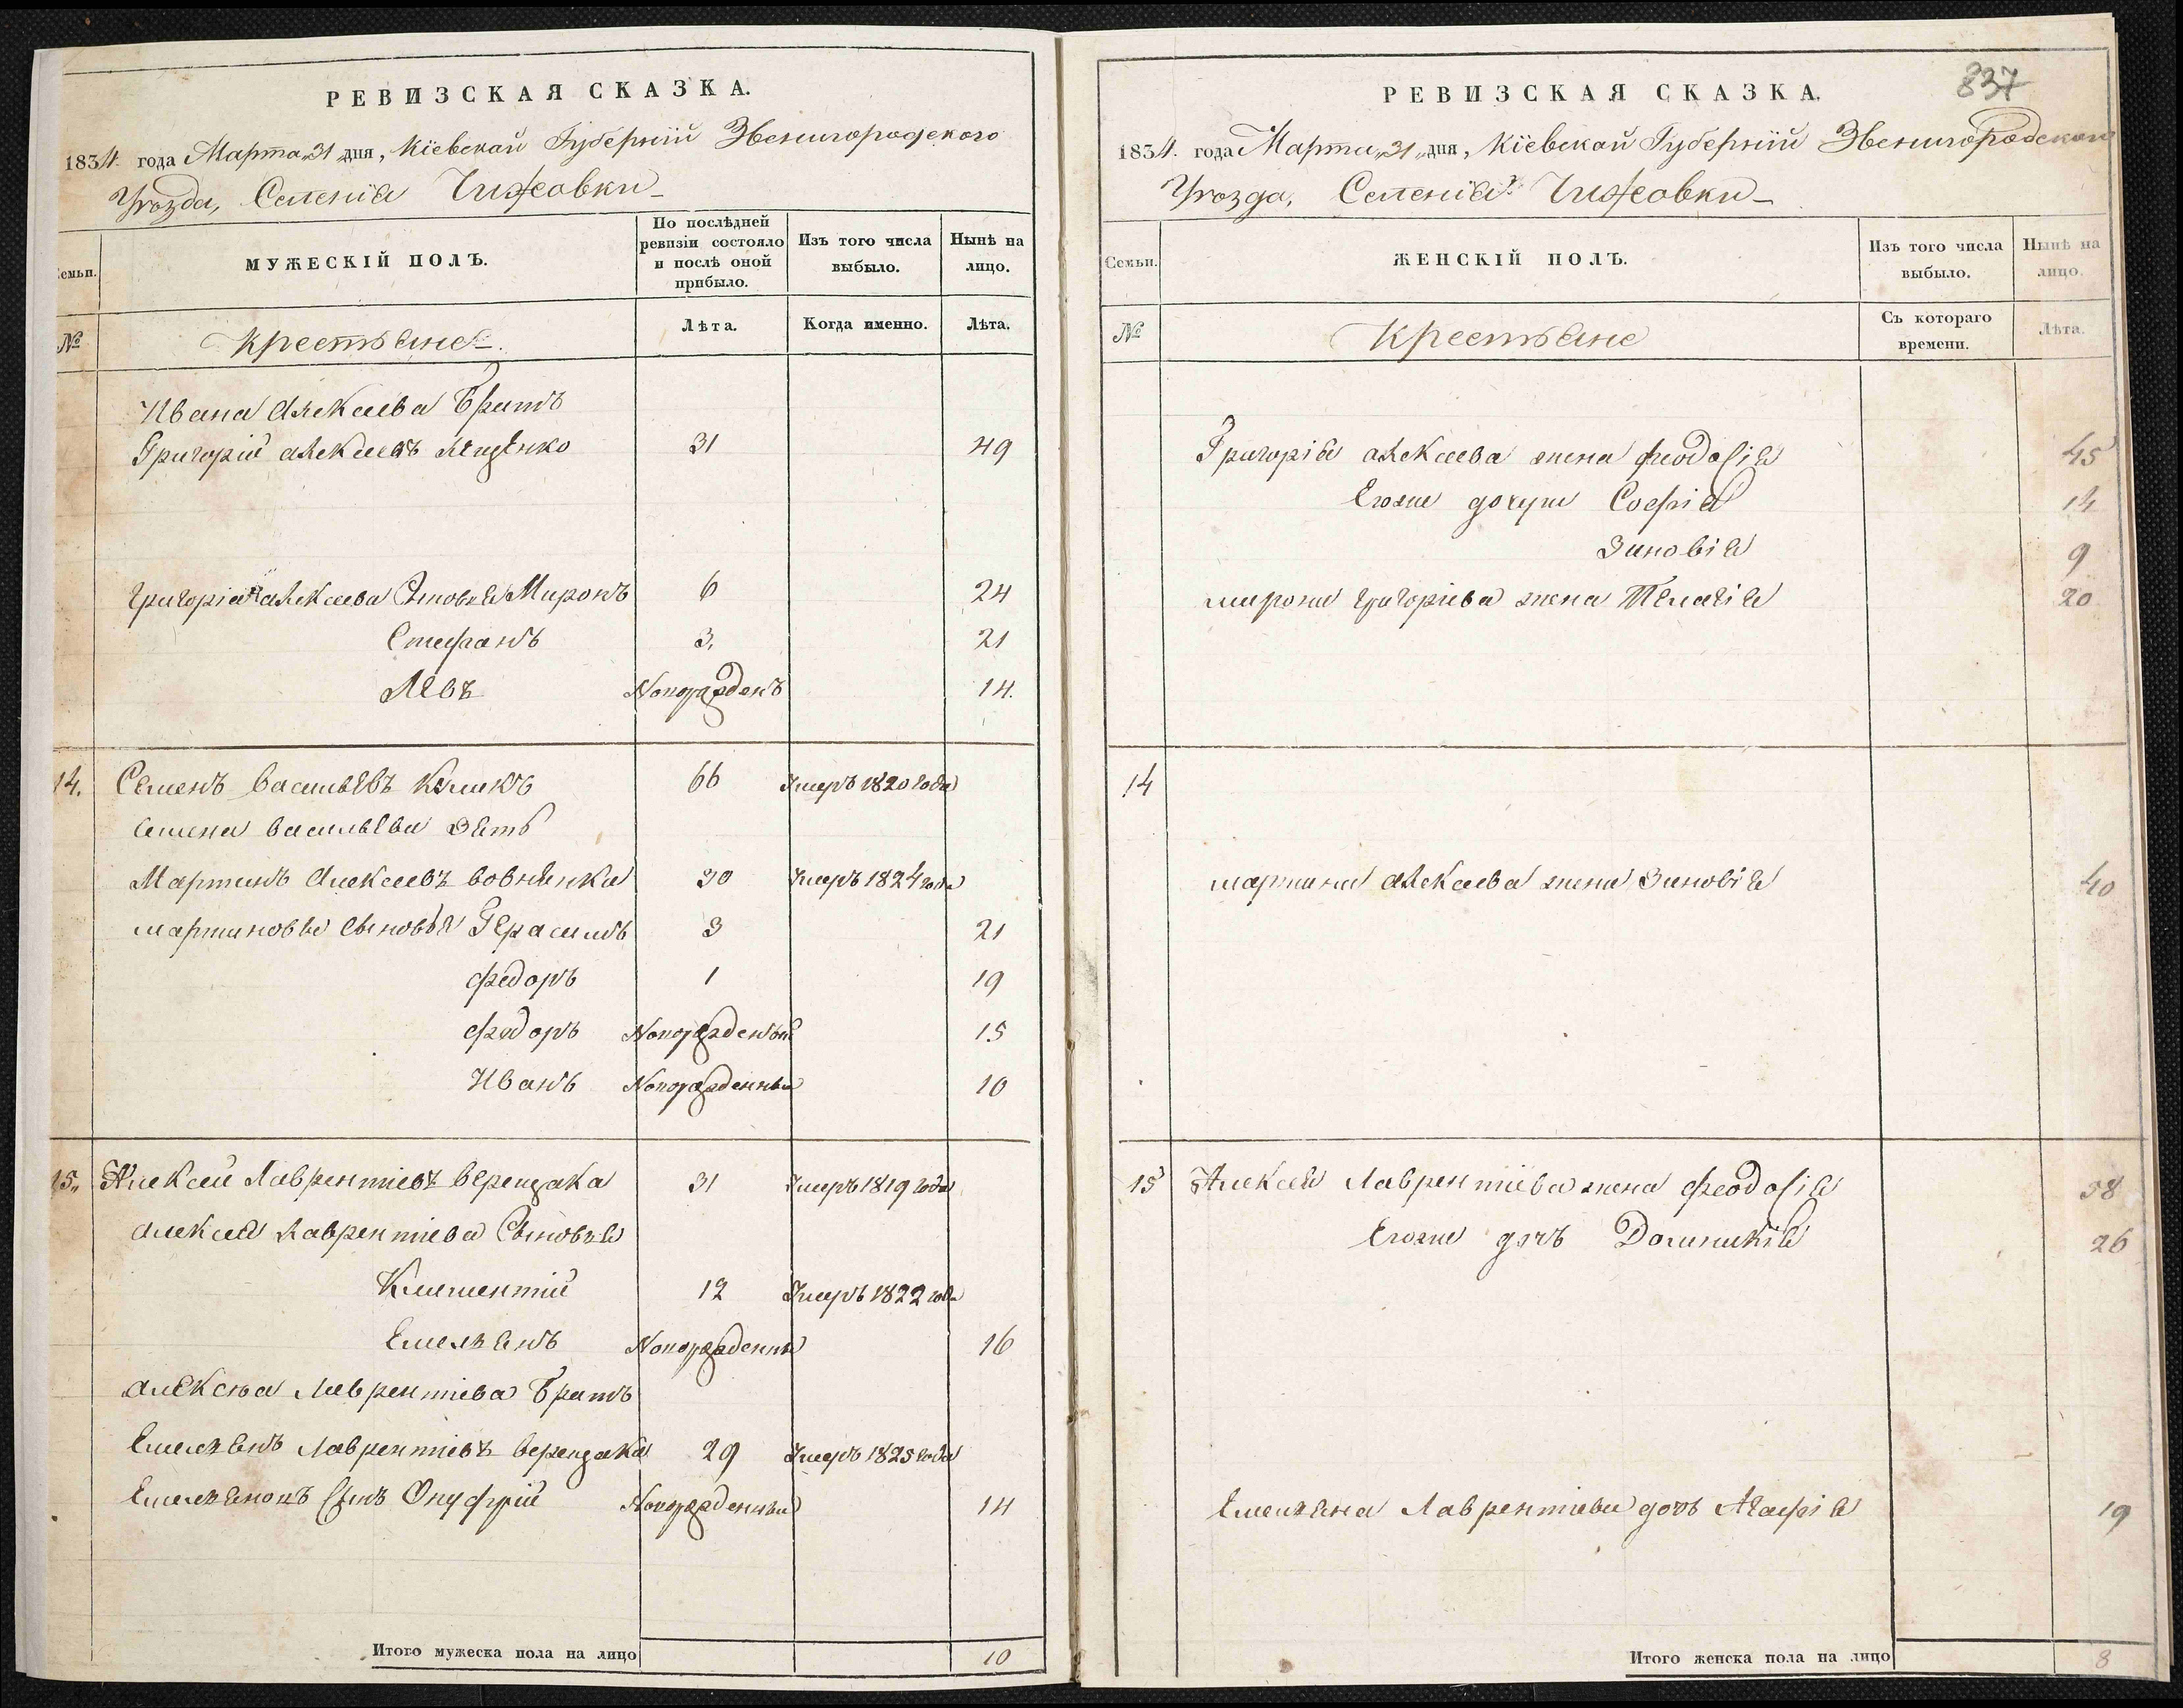 РЕВИЗСКАЯ СКАЗКА.
1834. года Марта „31 „дня, Кіевской Губерніи Звенигородского
Уѣзда, Селенія Чижовки
Семьи.
МУЖЕСКІЙ ПОЛЪ.
По послѣдней ревизіи состояло и послѣ оной прибыло.
Изъ того числа выбыло.
Нынѣ на лицо.
№
Крестьяне
Лѣта.
Когда именно.
Лѣта.
Ивана Алексеева Братъ
Григорій Алексеевъ 31 49
Григорія Алексеева Сыновья Миронъ 6 24
Стефанъ 3. 21
Левъ Новорожденъ 14.
14. Семенъ Васильевъ 66 Умеръ 1820 года
Семена Васильева Зять
Мартинъ Алексеевъ Вовнянка 30 Умеръ 1824 года
Мартиновы Сыновья Герасимъ 3 21
Федоръ 1 19
Федоръ Новорожденный 15
Иванъ Новорожденный 10
15„ Алексей Лаврентіевъ Верещака 31 Умеръ 1819 года
Алексея Лаврентіева Сыновья
Климентій 12 Умеръ 1822 года
Емельянъ Новорожденный 16
Алексѣя Лаврентіева Братъ
Емельянъ Лаврентіевъ Верещака 29 Умеръ 1825 года
Емельяновъ Сынъ Онуфрій Новорожденный 14
Итого мужеска пола на лицо 10
837
РЕВИЗСКАЯ СКАЗКА.
1834. года Марта „31 „дня, Кіевской Губерніи Звенигородского
Уѣзда, Селенія Чижовки
Семьи.
ЖЕНСКІЙ ПОЛЪ.
Изъ того числа выбыло.
Нынѣ на лицо.
№
Крестьяне
Съ котораго времени.
Лѣта.
Григорія Алексеева жена Феодосія 45
Егоже дочери Софія 14
Зиновія 9
Мирона Григоріева жена Пелагія 20
14
Мартина Алексеева жена Зиновія 40
15 Алексея Лаврентіева жена Феодосія 58
Егоже дочь Домникія 26
Емельяна Лаврентіева дочь Агафія 19
Итого женска пола на лицо 8